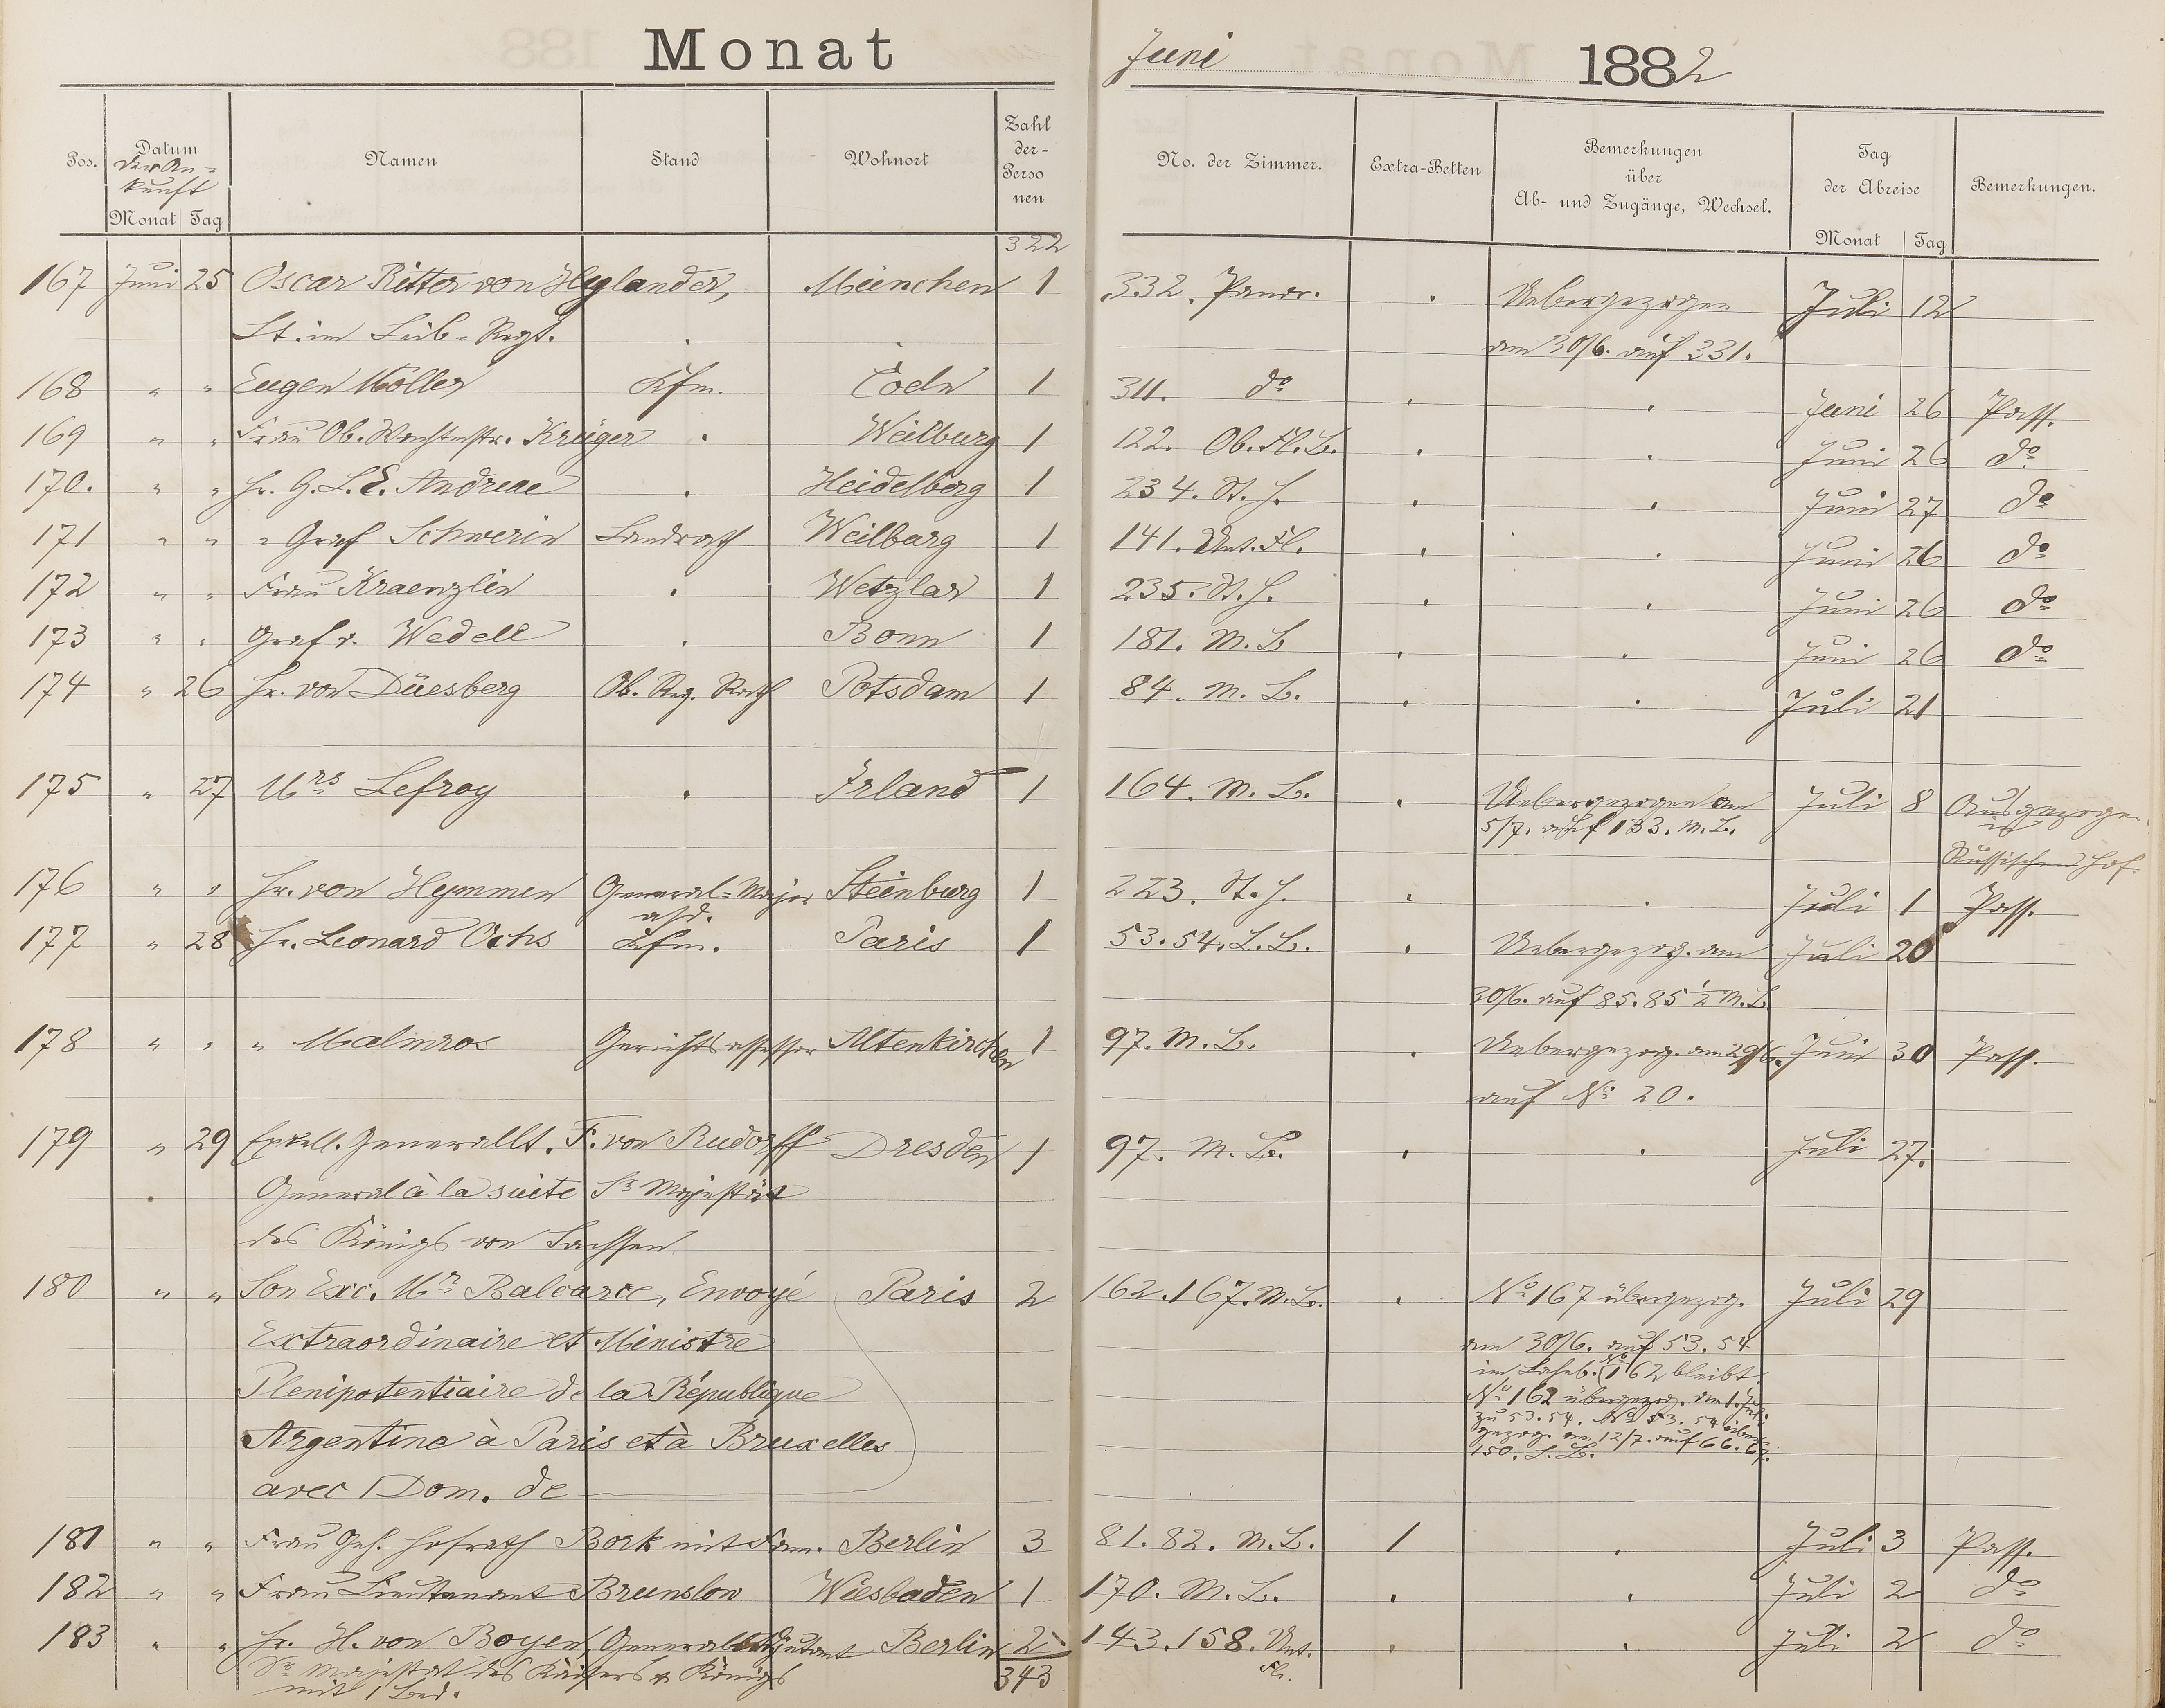 Monat
Juni 1882
Pos. Datum Namen Stand Wohnort Zahl der Perso nen No. der Zimmer. Extra-Betten Bemerkungen über Ab- und Zugänge, Wechsel. Tag der Abreise Bemerkungen.
der An=
kunft
Monat Tag Monat Tag
322
167 Juni 25 Oscar Ritter von Hylander, München 1 332. Panor. Uebergezogen Juli 12
Lt. im Leib=Regt. am 30/6. auf 331.
168 " " Eugen Möller Kfm. Coeln 1 311. do Juni 26 Pass.
169 " " Frau Ob. Wachtmstr. Krüger Weilburg 1 122. Ob. Fl. B. Juni 26 do
170. " " Hr. G. L. E. Andreae Heidelberg 1 234. St. H. Juni 27 do
171 " " " Graf Schwerin Landrath Weilburg 1 141. Unt. Fl. Juni 26 do
172 " " Frau Kraenzlin Wetzlar 1 235. St. H. Juni 26 do
173 " " Graf v. Wedell Bonn 1 181. M. B. Juni 26 do
174 " 26 Hr. von Düesberg Ob. Reg. Rath Potsdam 1 84. M. B. Juli 21
175 " 27 Mrs Lefroy Irland 1 164. M. B. Uebergezogen am Juli 8 Ausgezogen
5/7. auf 133. M. B. in
Russischen Hof.
176 " " Hr. von Hymmen General=Major Steinburg 1 223. St. H. Juli 1 Pass.
a/d.
177 " 28 Hr. Leonard Ochs Kfm. Paris 1 53. 54. L. B. Uebergezog. am Juli 20
30/6. auf 85. 85 1/2 M. B.
178 " " " Malmros Gerichtsassessor Altenkirchen 1 97. M. B. Uebergezog. am 29/6. Juni 30 Pass.
auf No 20.
179 " 29 Exkell. Generallt. F. von Rudorff Dresden 1 97. M. B. Juli 27.
General à la suite Sr Majestät
des Königs von Sachsen
180 " " Son Exc. Mr Balcarce, Envoyé Paris 2 162. 167. M. B. No 167 übergezog. Juli 29
Extraordinaire et Ministre am 30/6. auf 53. 54
Plenipotentiaire de la République im Lahnb. (No 162 bleibt
Argentine à Paris et à Bruxelles No 162 übergezog. am 1. Juli
zu 53. 54. No 53. 54 über=
gezog. am 12/7. auf 66. 67.
150. L. B.
avec 1 Dom. de
181 " " Frau Geh. Hofrath Bork mit Fam. Berlin 3 81. 82. M. B. 1 Juli 3 Pass.
182 " " Frau Lieutenant Brunslow Wiesbaden 1 170. M. B. Juli 2 do
183 " " Hr. H. von Boyen, General Adjutant Berlin 2 143. 158. Unt. Fl. Juli 2 do
Sr Majestät des Kaisers & Königs 343
mit 1 Bed.